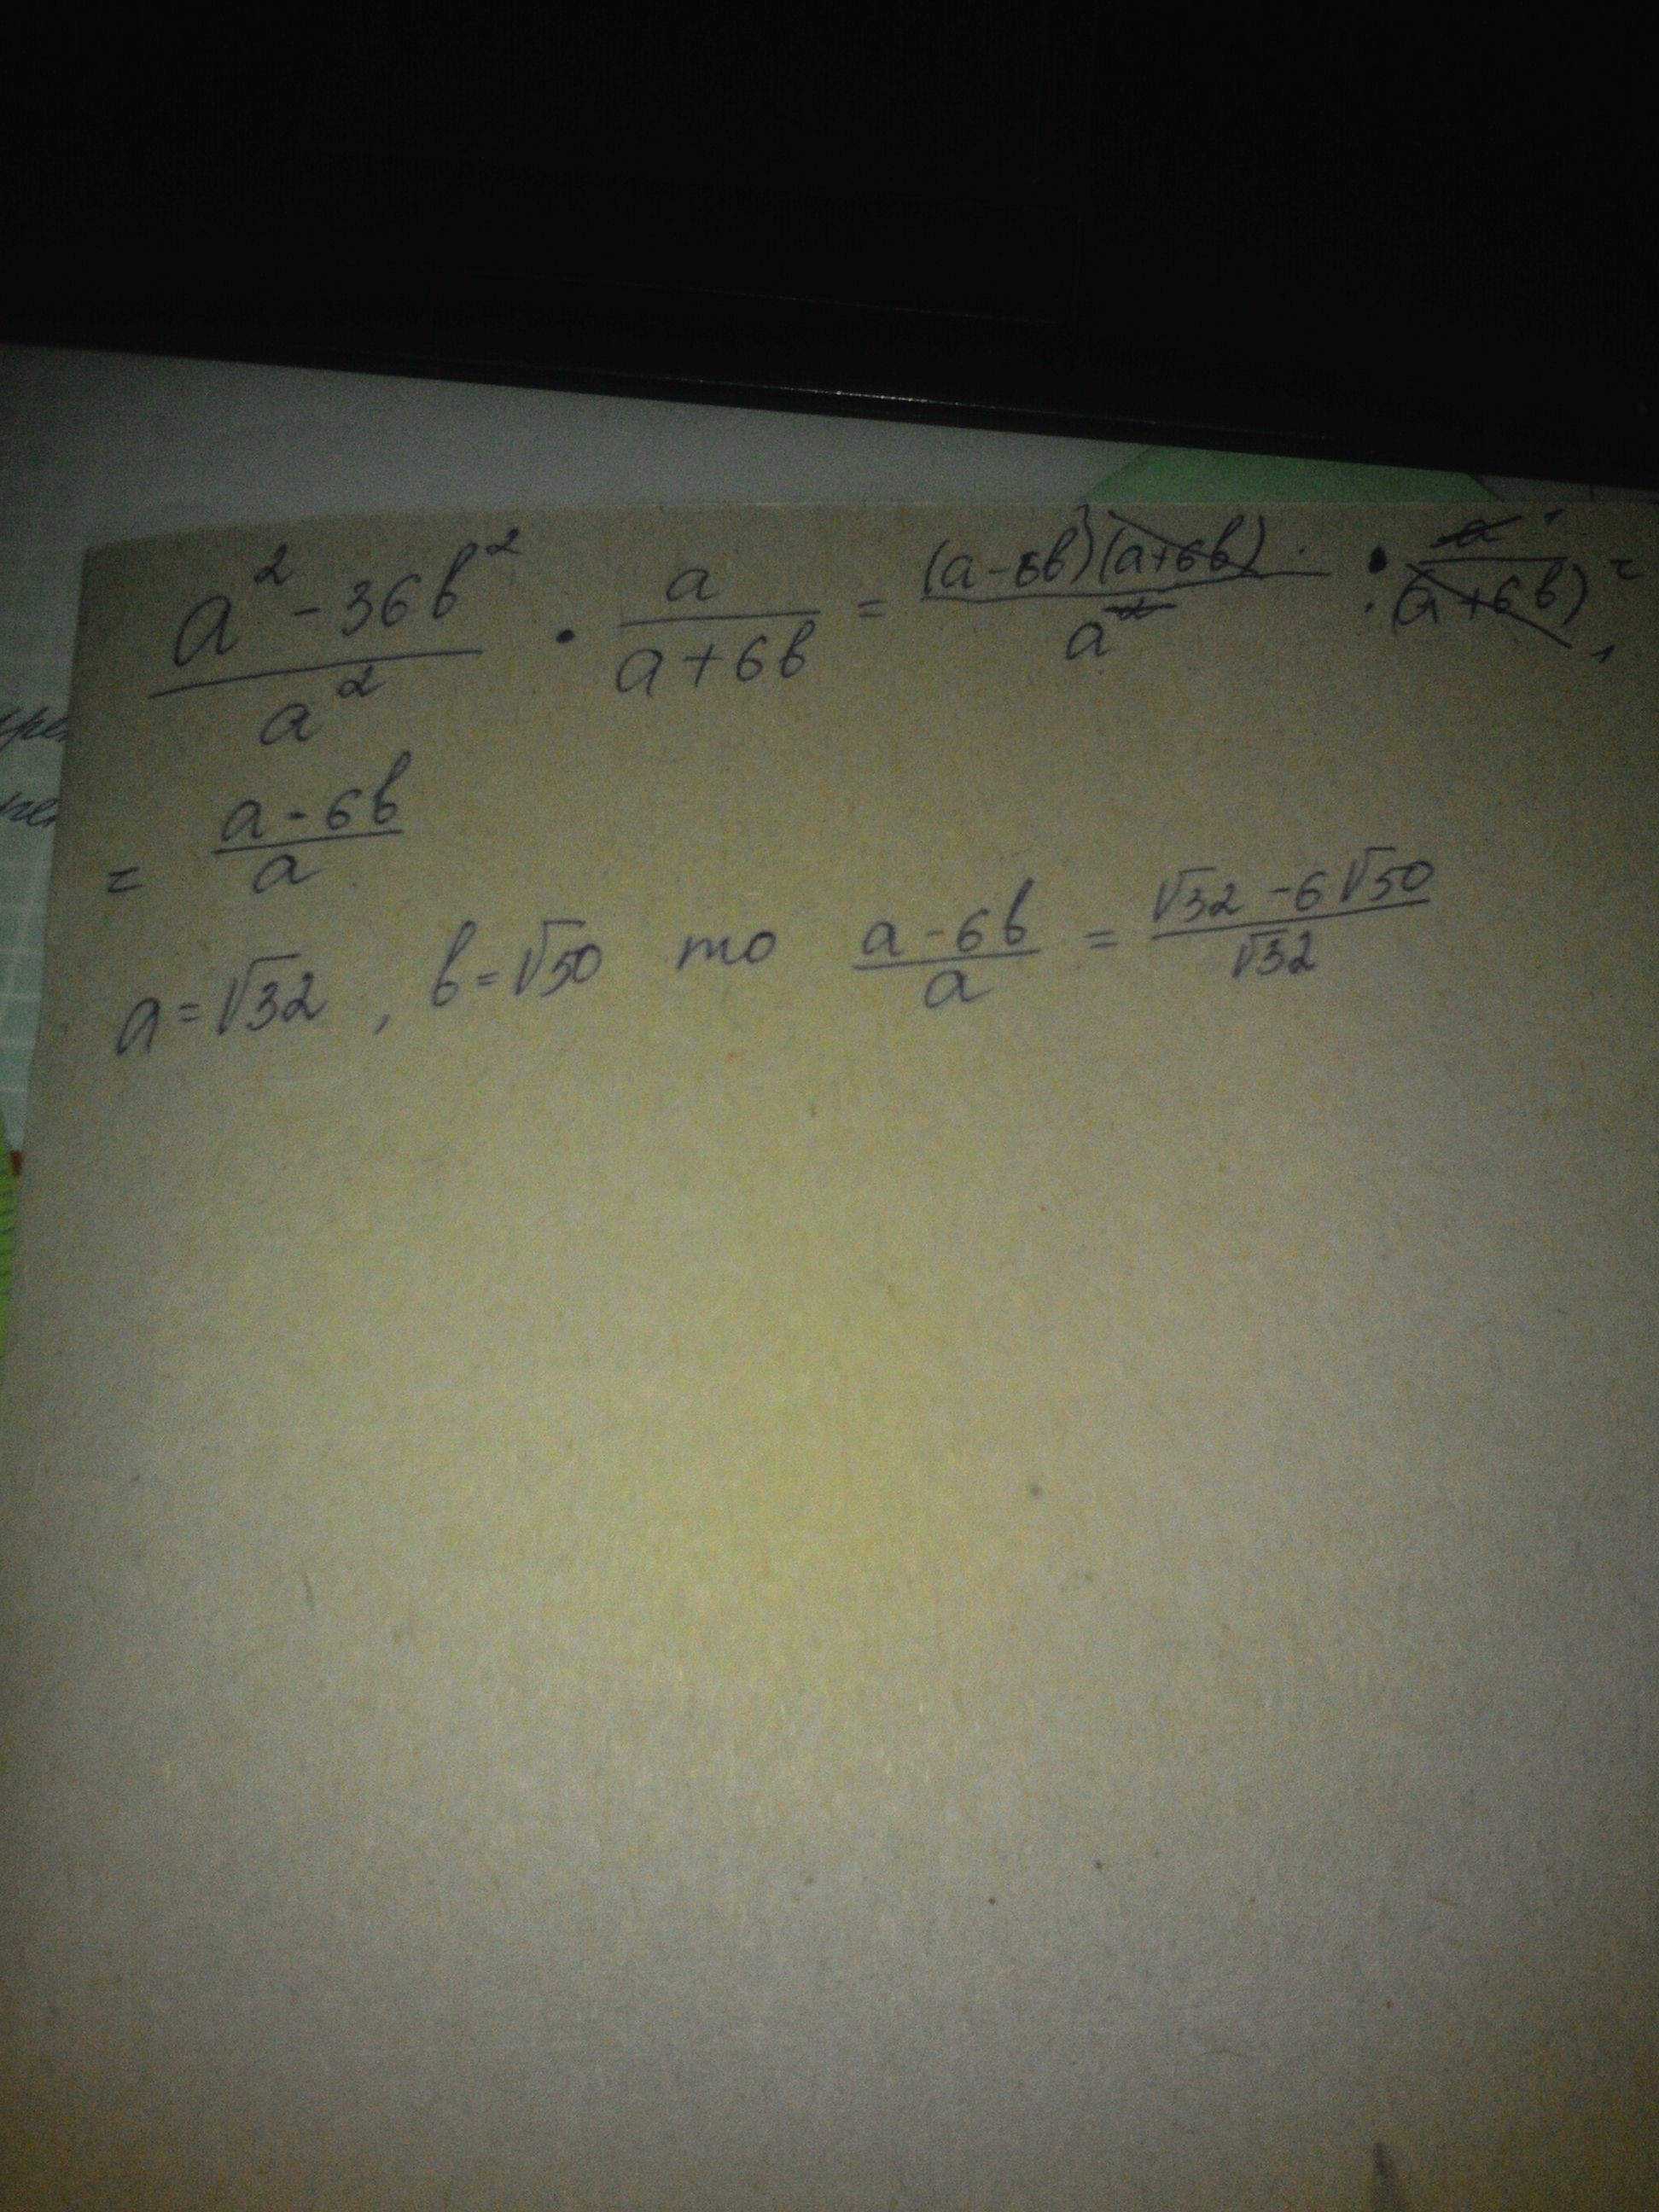 (a² - 36b²)/a² · a/(a+6b) = (a-6b)(a+6b)/a² · a/(a+6b) =
= (a-6b)/a
a=√32, b=√50 то (a-6b)/a = (√32 - 6√50)/√32